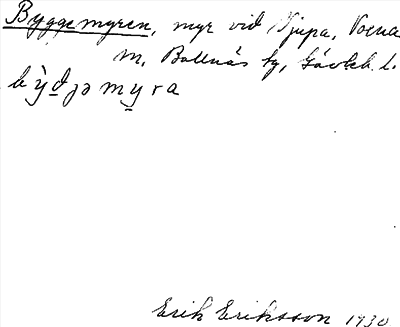 Byggemyren, myr vid Djupa, Voxna
m, Bollnäs fg, Gävleb. l.
bỳd̲ȷəmy̲ra
Erik Eriksson 1930